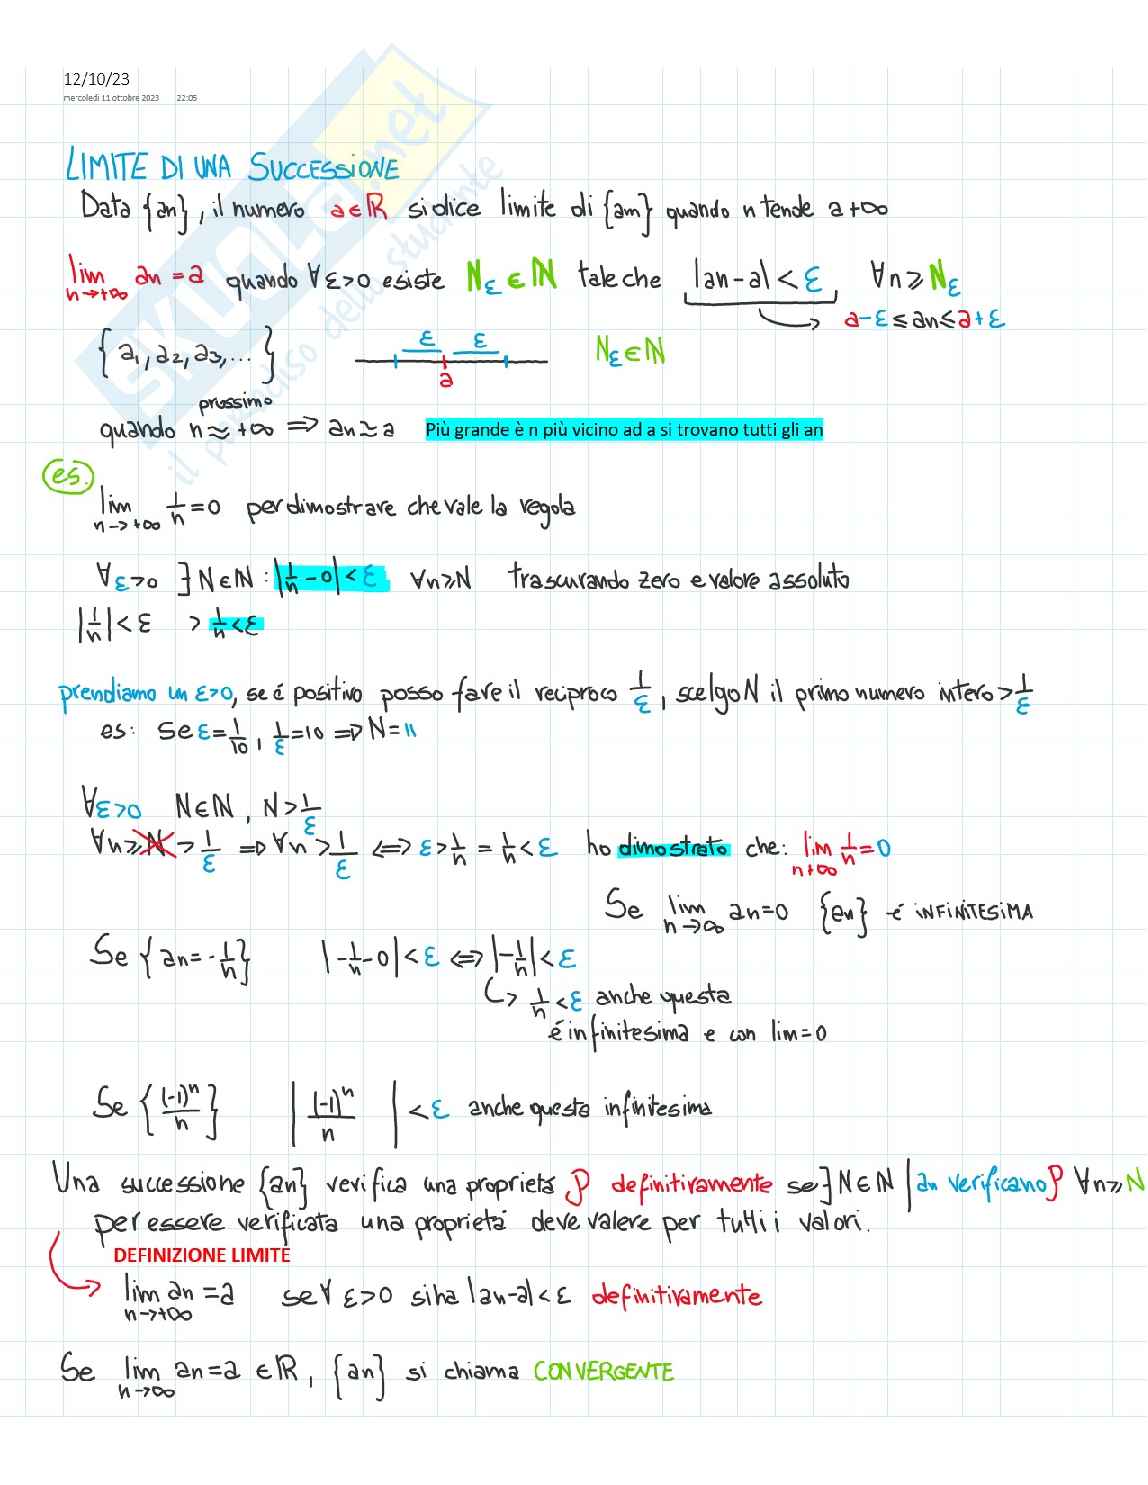 12/10/23
mercoledì 11 ottobre 2023 22:05
LIMITE DI UNA SUCCESSIONE
Data {an}, il numero a∈ℝ si dice limite di {am} quando n tende a +∞
lim n→+∞ an = a quando ∀ε>0 esiste Nε∈ℕ tale che |an-a|<ε ∀n≥Nε
a-ε≤an≤a+ε
{a1, a2, a3, ...} ε ε a Nε∈ℕ
prossimo
quando n≈+∞ ⇒ an≃a Più grande è n più vicino ad a si trovano tutti gli an
es.
lim n→+∞ 1/n=0 per dimostrare che vale la regola
∀ε>0 ∃N∈ℕ: |1/n-0|<ε ∀n≥N trascurando zero e valore assoluto
|1/n|<ε > 1/n<ε
prendiamo un ε>0, se é positivo posso fare il reciproco 1/ε, scelgo N il primo numero intero > 1/ε
es: se ε=1/10, 1/ε=10 ⇒ N=11
∀ε>0 N∈ℕ, N>1/ε
∀n≥N>1/ε ⇒ ∀n>1/ε ⇔ ε>1/n = 1/n<ε ho dimostrato che: lim n+∞ 1/n=0
Se lim n→∞ an=0 {an} é INFINITESIMA
Se {an=-1/n} |-1/n-0|<ε ⇔ |-1/n|<ε
↳ 1/n<ε anche questa
é infinitesima e con lim=0
Se {(-1)^n/n} |(-1)^n/n|<ε anche questa infinitesima
Una successione {an} verifica una proprietá P definitivamente se ∃N∈ℕ | an verificano P ∀n≥N
per essere verificata una proprietá deve valere per tutti i valori.
DEFINIZIONE LIMITE
lim n→+∞ an=a se ∀ε>0 si ha |an-a|<ε definitivamente
Se lim n→∞ an=a ∈ℝ, {an} si chiama CONVERGENTE
SKUOLA.net
il paradiso dello studente